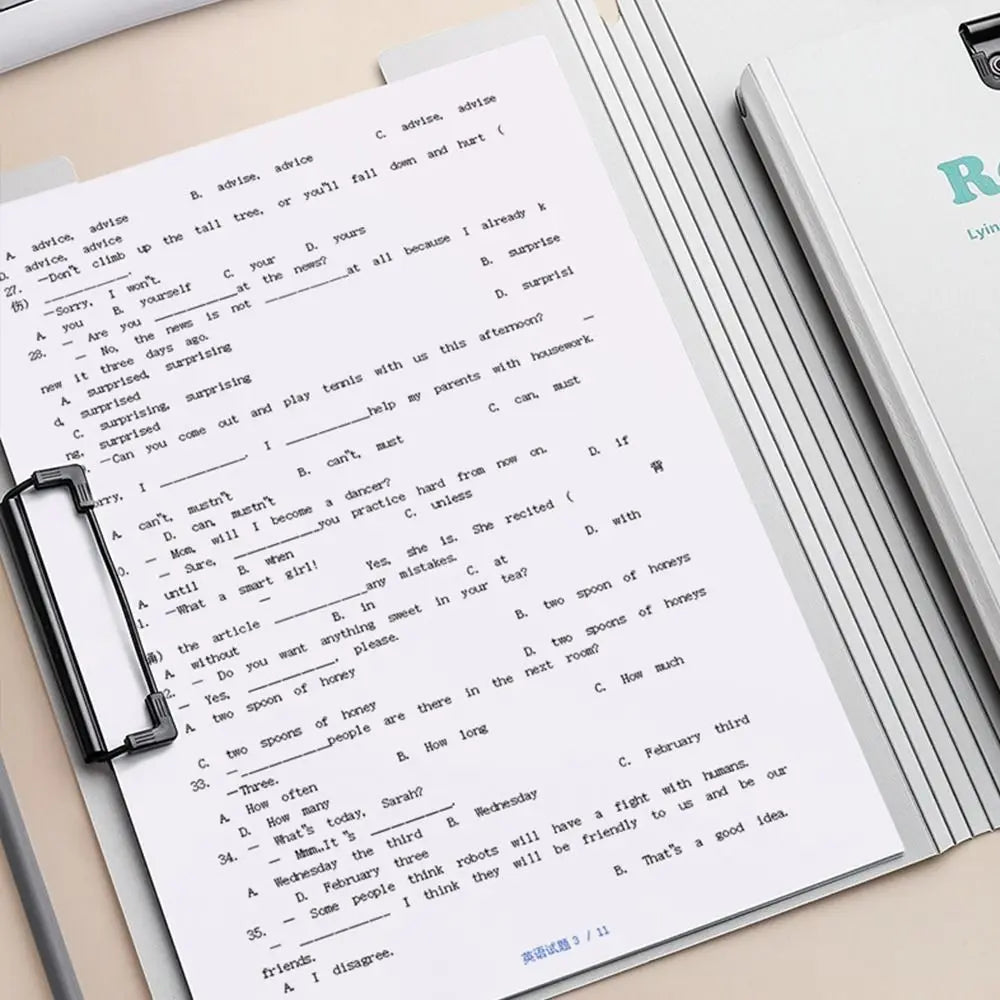 C. advise, advise
B. advise, advice
A. advice, advise
D. advice, advice
27. —Don"t climb up the tall tree, or you"ll fall down and hurt (
伤) ____________.
—Sorry, I won"t.
A. you B. yourself C. your D. yours
28. — Are you ___________at the news?
— No, the news is not ___________at all because I already k
new it three days ago.
A. surprised, surprising B. surprise
d, surprised
C. surprising, surprising D. surprisi
ng, surprised
—Can you come out and play tennis with us this afternoon? —
orry, I ____________, I ____________help my parents with housework.
A. can"t, mustn"t B. can"t, must C. can, must
D. can, mustn"t
0. — Mom, will I become a dancer?
— Sure, ____________you practice hard from now on.
A. until B. when C. unless D. if
1. —What a smart girl!
— Yes, she is. She recited ( 背
诵) the article ____________any mistakes.
A. without B. in C. at D. with
2. — Do you want anything sweet in your tea?
— Yes, ____________, please.
A. two spoon of honey B. two spoon of honeys
C. two spoons of honey D. two spoons of honeys
33. —____________people are there in the next room?
—Three.
A. How often B. How long C. How much
D. How many
34. — What"s today, Sarah?
— Mmm…It"s ____________.
A. Wednesday the third B. Wednesday C. February third
D. February three
35. — Some people think robots will have a fight with humans.
— ____________ I think they will be friendly to us and be our
friends.
A. I disagree. B. That"s a good idea.
英语试题 3 / 11
Lyin